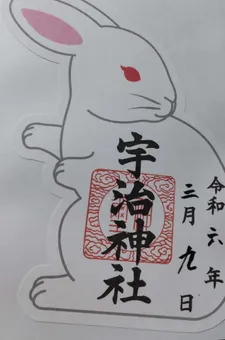 令和六年
三月九日
宇治神社